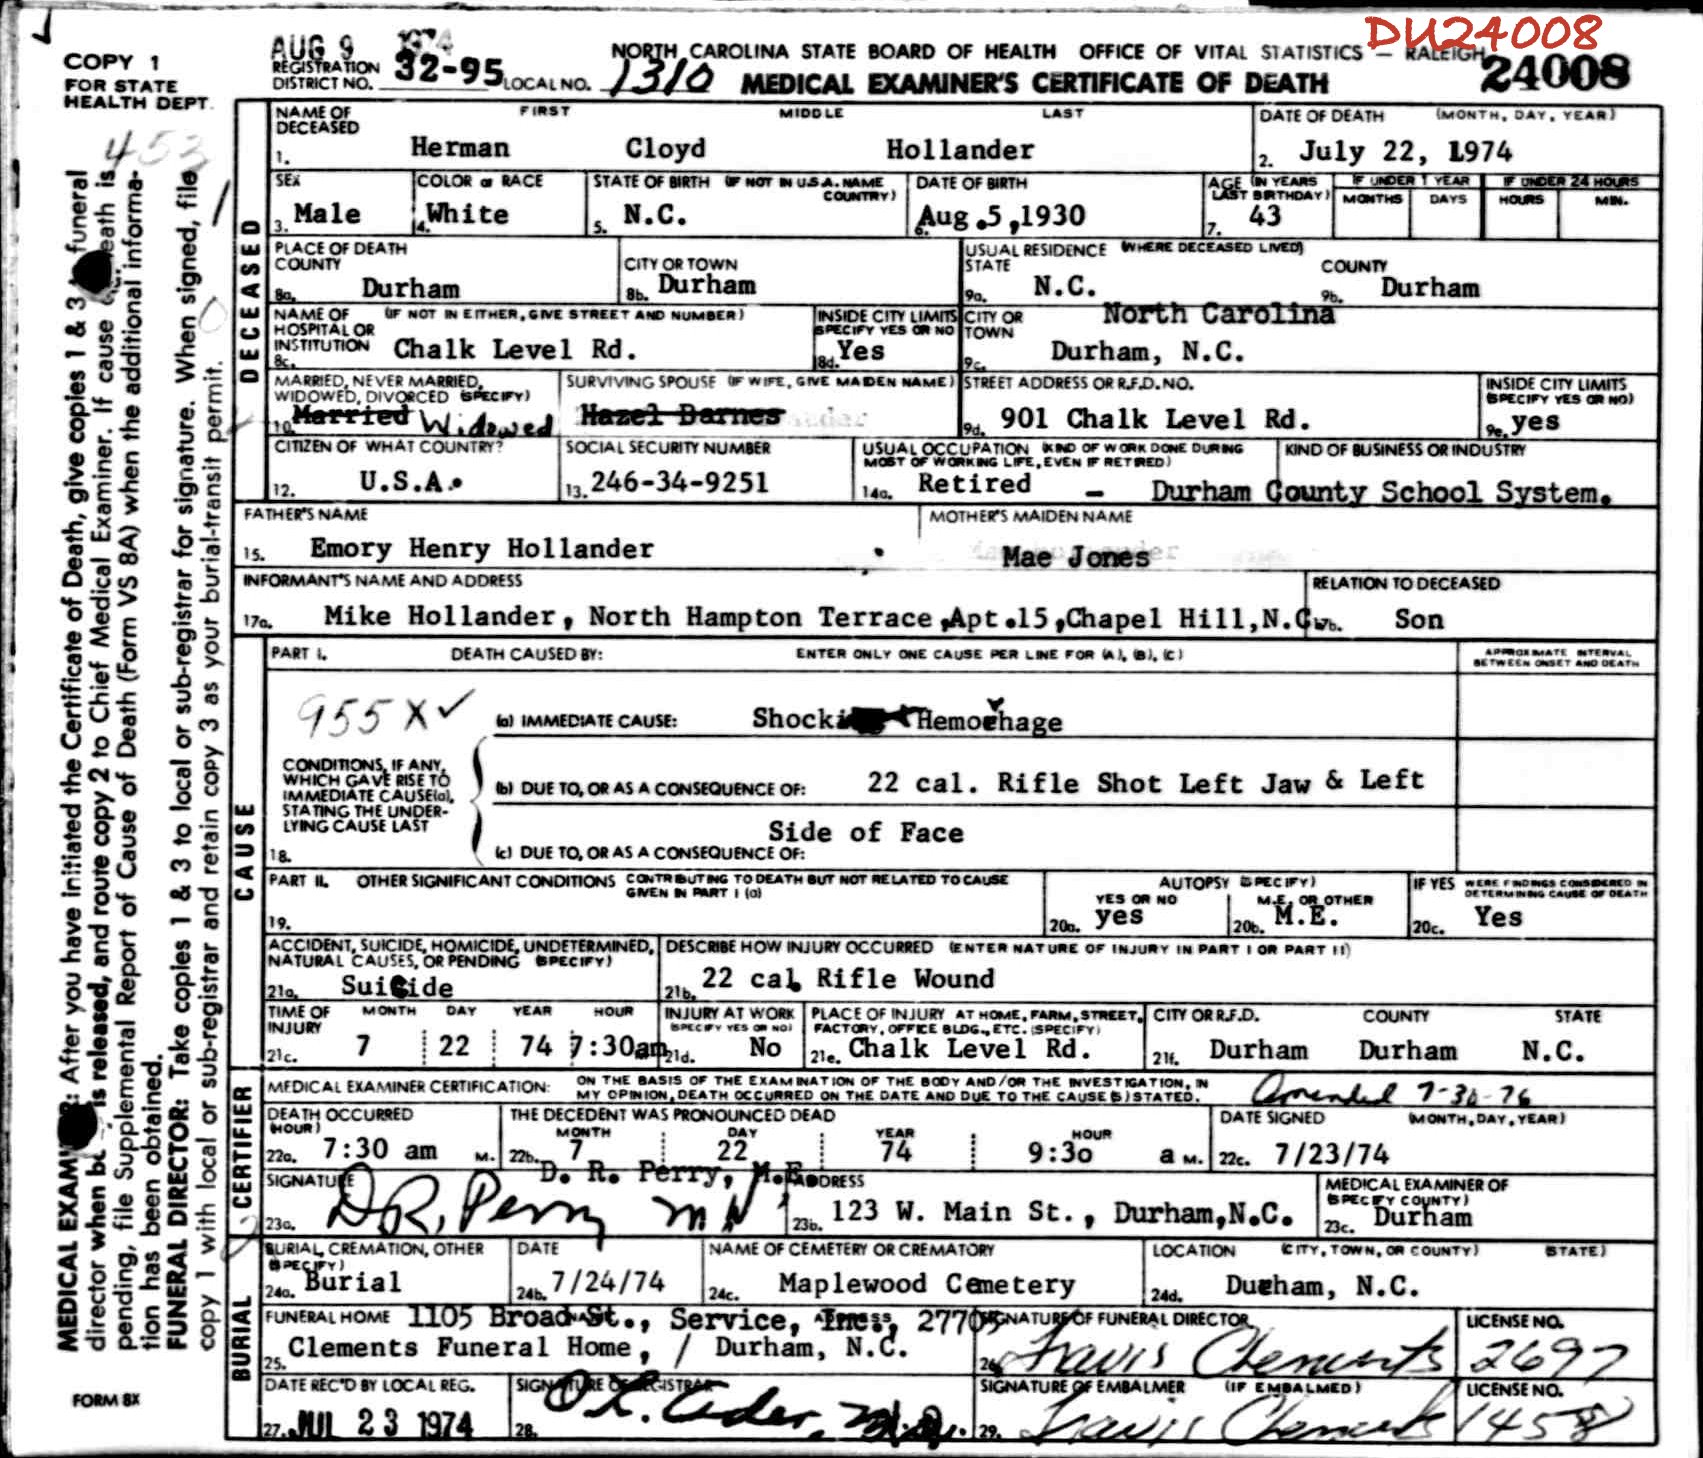 DU24008
COPY 1
FOR STATE
HEALTH DEPT.
AUG 9 1974
REGISTRATION
DISTRICT NO. 32-95 LOCAL NO. 1310
NORTH CAROLINA STATE BOARD OF HEALTH OFFICE OF VITAL STATISTICS — RALEIGH
MEDICAL EXAMINER'S CERTIFICATE OF DEATH
24008
453
1
0
MEDICAL EXAMINER: After you have initiated the Certificate of Death, give copies 1 & 3 funeral
director when is released, and route copy 2 to Chief Medical Examiner. If cause death is
pending, file Supplemental Report of Cause of Death (Form VS 8A) when the additional informa-
tion has been obtained.
FUNERAL DIRECTOR: Take copies 1 & 3 to local or sub-registrar for signature. When signed, file
copy 1 with local or sub-registrar and retain copy 3 as your burial-transit permit.
FORM 8X
DECEASED
NAME OF DECEASED FIRST MIDDLE LAST
1. Herman Cloyd Hollander
DATE OF DEATH (MONTH, DAY, YEAR)
2. July 22, 1974
SEX
3. Male
COLOR or RACE
4. White
STATE OF BIRTH (IF NOT IN U.S.A. NAME COUNTRY)
5. N.C.
DATE OF BIRTH
6. Aug.5,1930
AGE (IN YEARS LAST BIRTHDAY)
7. 43
IF UNDER 1 YEAR
MONTHS DAYS
IF UNDER 24 HOURS
HOURS MIN.
PLACE OF DEATH
COUNTY
8a. Durham
CITY OR TOWN
8b. Durham
USUAL RESIDENCE (WHERE DECEASED LIVED)
STATE
9a. N.C.
COUNTY
9b. Durham
NAME OF HOSPITAL OR INSTITUTION (IF NOT IN EITHER, GIVE STREET AND NUMBER)
8c. Chalk Level Rd.
INSIDE CITY LIMITS (SPECIFY YES OR NO)
8d. Yes
CITY OR TOWN
North Carolina
9c. Durham, N.C.
MARRIED, NEVER MARRIED, WIDOWED, DIVORCED (SPECIFY)
10. Married Widowed
SURVIVING SPOUSE (IF WIFE, GIVE MAIDEN NAME)
Hazel Barnes
STREET ADDRESS OR R.F.D. NO.
9d. 901 Chalk Level Rd.
INSIDE CITY LIMITS (SPECIFY YES OR NO)
9e. yes
CITIZEN OF WHAT COUNTRY?
12. U.S.A.
SOCIAL SECURITY NUMBER
13. 246-34-9251
USUAL OCCUPATION (KIND OF WORK DONE DURING MOST OF WORKING LIFE, EVEN IF RETIRED)
14a. Retired -
KIND OF BUSINESS OR INDUSTRY
Durham County School System.
FATHER'S NAME
15. Emory Henry Hollander
MOTHER'S MAIDEN NAME
Mae Jones
INFORMANT'S NAME AND ADDRESS
17a. Mike Hollander, North Hampton Terrace,Apt.15,Chapel Hill,N.C.
RELATION TO DECEASED
17b. Son
CAUSE
PART I. DEATH CAUSED BY: ENTER ONLY ONE CAUSE PER LINE FOR (A), (B), (C)
APPROXIMATE INTERVAL BETWEEN ONSET AND DEATH
955X ✓
(a) IMMEDIATE CAUSE: Shock Hemorhage
CONDITIONS, IF ANY,
WHICH GAVE RISE TO
IMMEDIATE CAUSE(a),
STATING THE UNDER-
LYING CAUSE LAST
18.
(b) DUE TO, OR AS A CONSEQUENCE OF: 22 cal. Rifle Shot Left Jaw & Left
Side of Face
(c) DUE TO, OR AS A CONSEQUENCE OF:
PART II. OTHER SIGNIFICANT CONDITIONS CONTRIBUTING TO DEATH BUT NOT RELATED TO CAUSE GIVEN IN PART I (a)
19.
AUTOPSY (SPECIFY)
YES OR NO
20a. yes
M.E. OR OTHER
20b. M.E.
IF YES WERE FINDINGS CONSIDERED IN DETERMINING CAUSE OF DEATH
20c. Yes
ACCIDENT, SUICIDE, HOMICIDE, UNDETERMINED, NATURAL CAUSES, OR PENDING (SPECIFY)
21a. Suicide
DESCRIBE HOW INJURY OCCURRED (ENTER NATURE OF INJURY IN PART I OR PART II)
21b. 22 cal. Rifle Wound
TIME OF INJURY MONTH DAY YEAR HOUR
21c. 7 22 74 7:30am
INJURY AT WORK (SPECIFY YES OR NO)
21d. No
PLACE OF INJURY AT HOME, FARM, STREET, FACTORY, OFFICE BLDG., ETC. (SPECIFY)
21e. Chalk Level Rd.
CITY OR R.F.D. COUNTY STATE
21f. Durham Durham N.C.
CERTIFIER
MEDICAL EXAMINER CERTIFICATION: ON THE BASIS OF THE EXAMINATION OF THE BODY AND/OR THE INVESTIGATION, IN
MY OPINION, DEATH OCCURRED ON THE DATE AND DUE TO THE CAUSE(S) STATED.
Amended 7-30-76
DEATH OCCURRED (HOUR)
22a. 7:30 am M.
THE DECEDENT WAS PRONOUNCED DEAD
MONTH DAY YEAR HOUR
22b. 7 22 74 9:30 a M.
DATE SIGNED (MONTH, DAY, YEAR)
22c. 7/23/74
SIGNATURE D. R. Perry, M.E.
23a. D R. Perry MD
ADDRESS
23b. 123 W. Main St., Durham,N.C.
MEDICAL EXAMINER OF (SPECIFY COUNTY)
23c. Durham
BURIAL
BURIAL, CREMATION, OTHER (SPECIFY)
24a. Burial
DATE
24b. 7/24/74
NAME OF CEMETERY OR CREMATORY
24c. Maplewood Cemetery
LOCATION (CITY, TOWN, OR COUNTY) (STATE)
24d. Durham, N.C.
FUNERAL HOME NAME ADDRESS
1105 Broad St., Service, Inc., 27705
25. Clements Funeral Home, / Durham, N.C.
SIGNATURE OF FUNERAL DIRECTOR
26. Travis Clements
LICENSE NO.
2697
DATE REC'D BY LOCAL REG.
27. JUL 23 1974
SIGNATURE OF REGISTRAR
28. O L. Ader, M.D.
SIGNATURE OF EMBALMER (IF EMBALMED)
29. Travis Clements
LICENSE NO.
1458